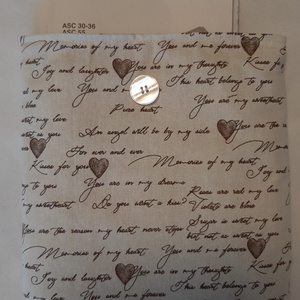 ASC 30-36
ASC 55
Memories of my heart You and me forever
Joy and laughter You are in my thoughts Kisses for
my love You and m This heart belongs to you
Pure heart
An angel will be by my side You are the
at is you For ever and ever Mem
Kisses for you Memories of my heart
to you You are in my dreams Joy and
my love Roses are red my love
my sweetheart Do you want a kiss? Violets are blue
Sugar is sweet my love
You are the reason my heart never stops but not as sweet as you
Memories of my heart You and me forever
Joy and laughter You are in my thoughts Kisses for
my love This heart belongs to you